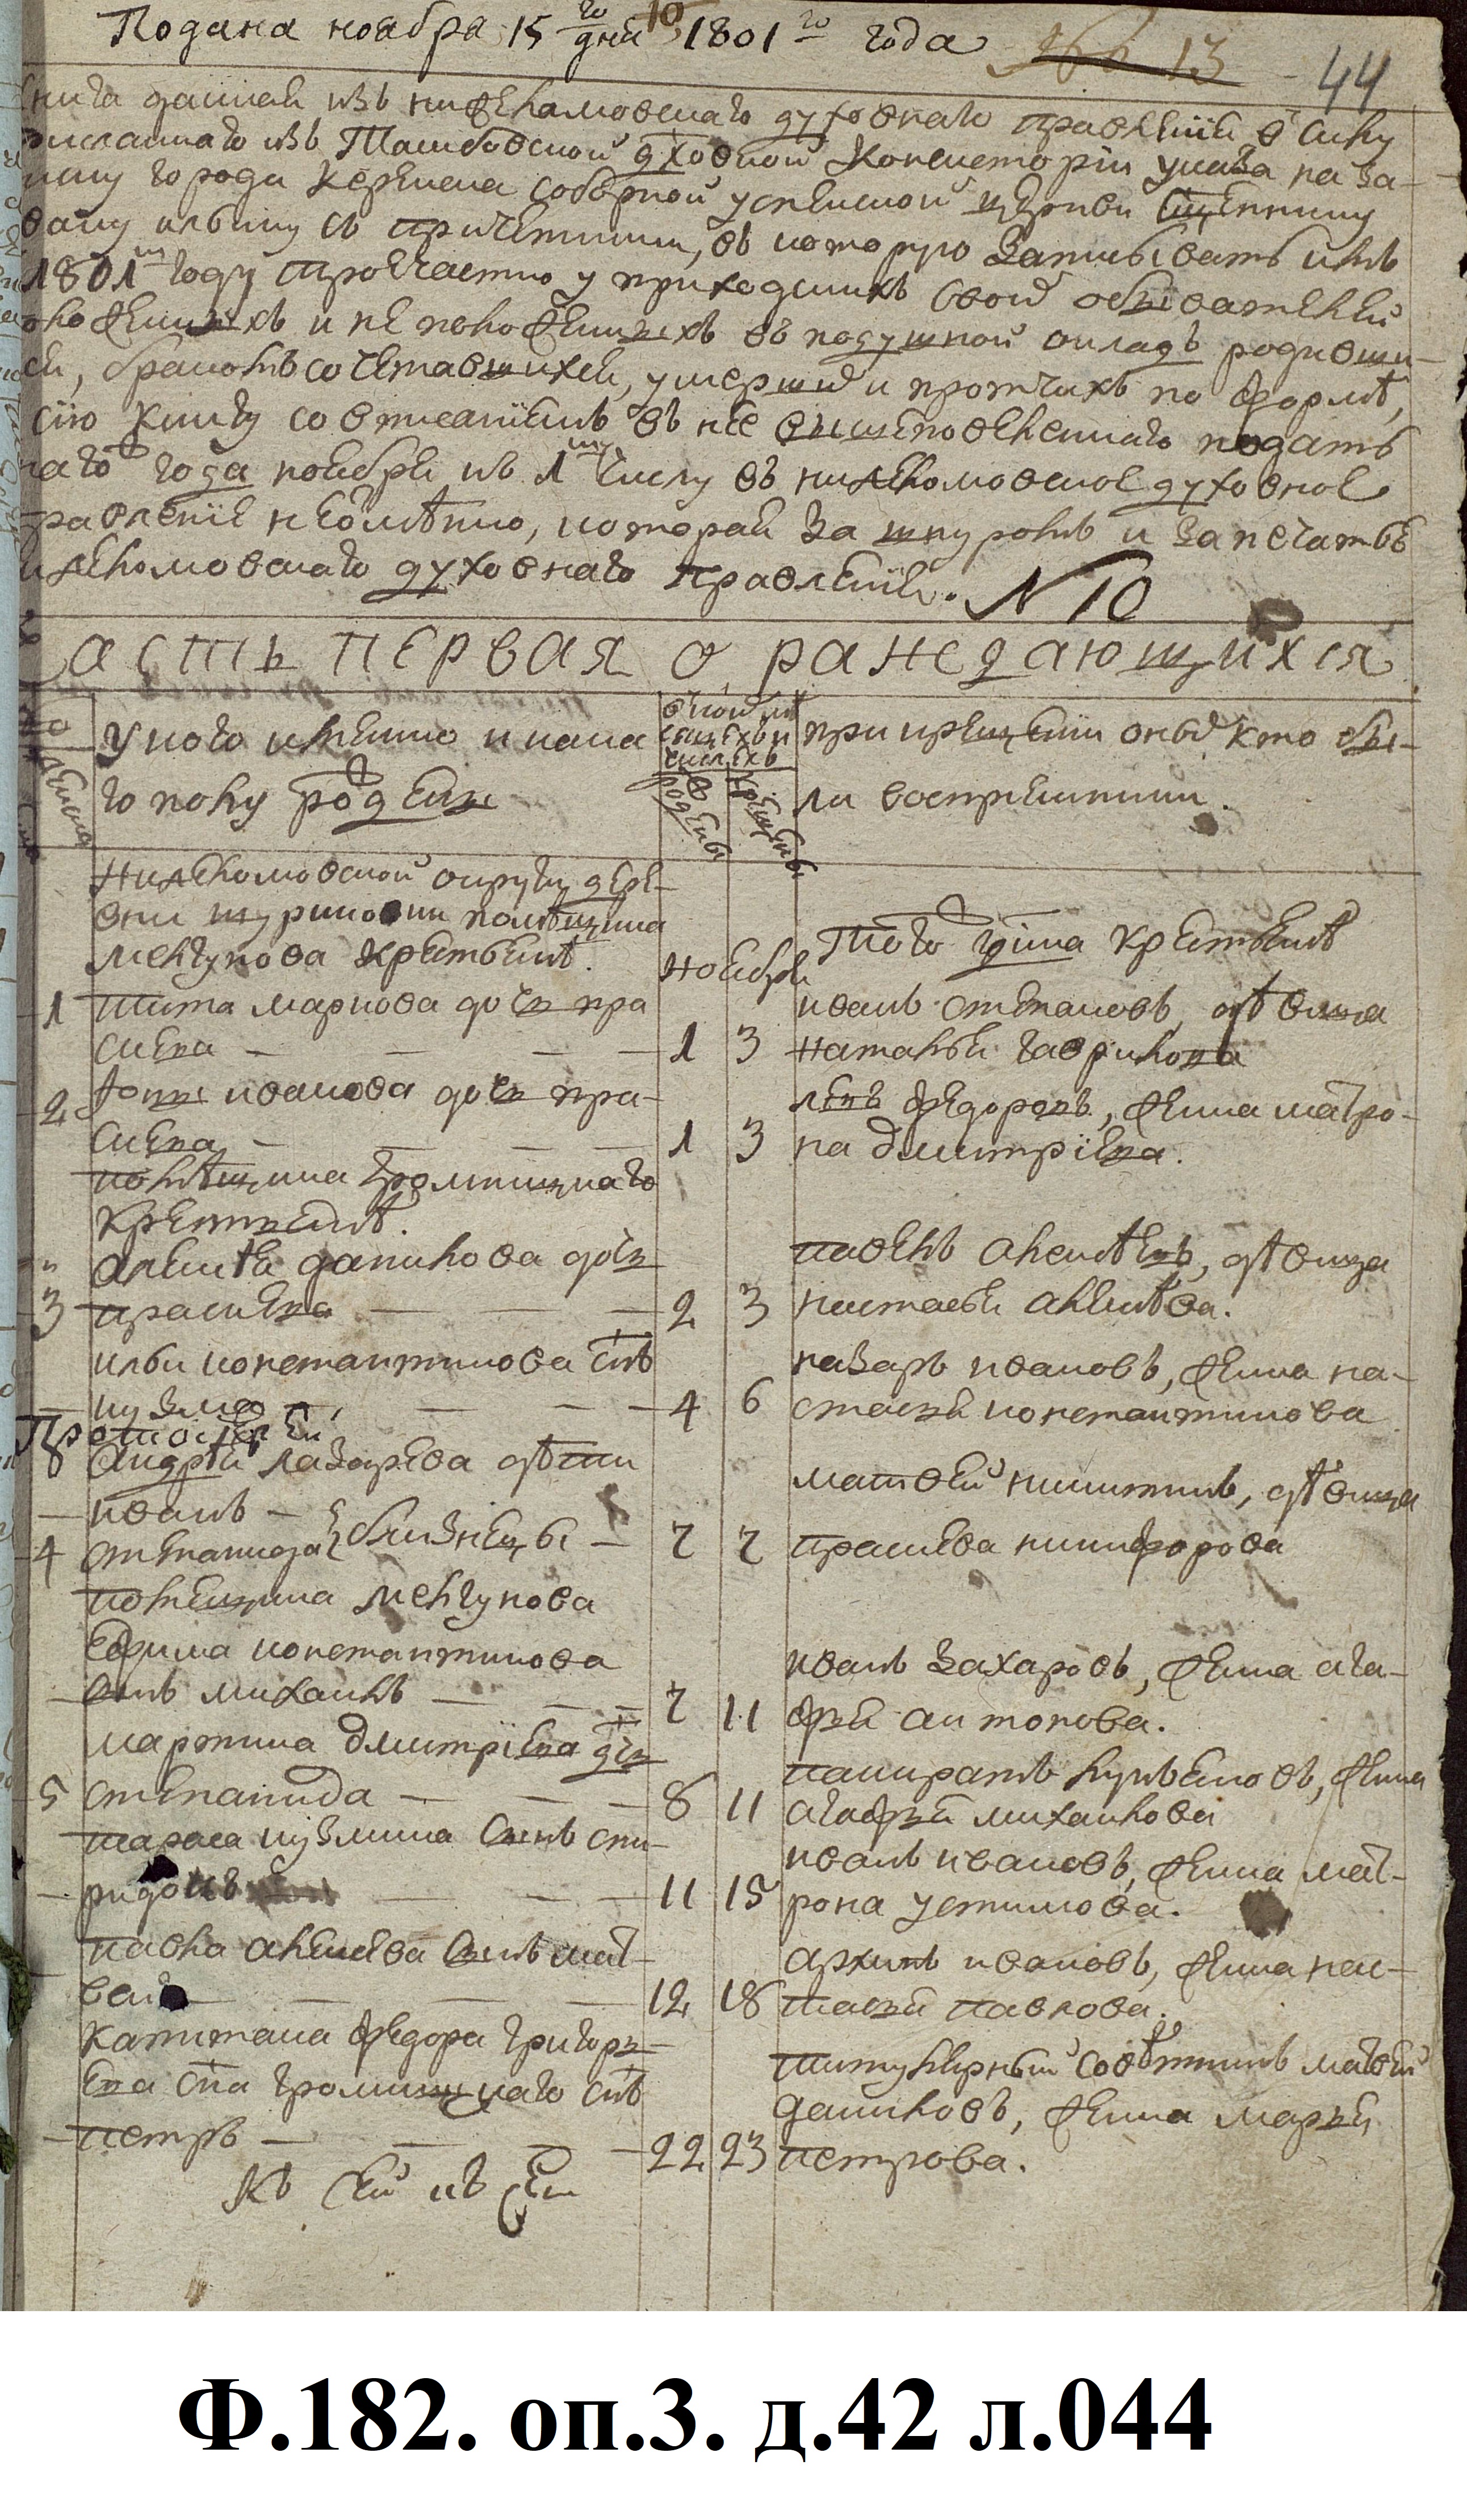 Подана ноября 15 го дня 1801 го года
10
13
44
книга данная изъ нижеломовскаго духовнаго правленія в силу
присланнаго изъ Танбовской духовной Консисторіи указа на за-
писку города Керенска соборной успенской церкви священнику
ивану ильину съ причетники, въ которую записывать имъ
1801 му году троечастно у приходскихъ своих обывателей
положенныхъ и не положенныхъ въ подушной окладъ родивши-
ся, бракомъ сочетавшихся, умерших и протчихъ по формѣ,
сію книгу со вписаніемъ въ нее вышеповеленнаго подать
наго года ноября къ 1 му числу въ нижеломовское духовное
правленіе неотмѣнно, которая за шнуромъ и за печатью
нижеломовскаго духовнаго правленія. N 10
Часть первая о раждающихся
У кого имянно и кака
го полу рожденъ
оной мѣ
сяцехъ и
числехъ
рождены
крещены
при крещеніи оных кто бы-
ли воспріемники.
Нижеломовской округи дере-
вни шуриновки помѣщика
Мелгунова крестьянъ.
Ноября
Того г дина крестьянъ
1 Тита маркова дочь пра
сковья — 1 3
иванъ степановъ, дѣвица
наталья гаврилова
2 Фоки иванова дочь пра-
сковья — 1 3
левъ федоровъ, жена матро-
на дмитріева.
помѣщика Громницкаго
крестьянъ.
алексѣя данилова дочь
3 прасковья — 2 3
павелъ алексѣевъ, дѣвица
настасья алексѣева.
ильи константинова сынъ
кузма — 4 6
назаръ ивановъ, жена на-
стасья константинова
андрѣя лазарева дѣти
иванъ —
4 степанида близнецы — 7 7
матвей никитинъ, дѣвица
прасковья никифорова
помещика Мелгунова
Ефима константинова
сынъ михаилъ — 7 11
иванъ захаровъ, жена ага-
фья антонова.
мартина дмитріева дочь
5 степанида — 8 11
панкратъ кузьминовъ, жена
агафья михаилова
тараса кузмина сынъ спи-
ридонъ — 11 15
иванъ ивановъ, жена мат-
рона устинова.
павла алексѣева сынъ мат-
вей — 12 18
архипъ ивановъ, жена нас-
тасья павлова.
капитана федора григорь-
ева сна громницкаго снъ
петръ — 22 23
титулярный совѣтникъ матвей
даниловъ, жена марья
петрова.
Къ сей кн
Ф.182. оп.3. д.42 л.044